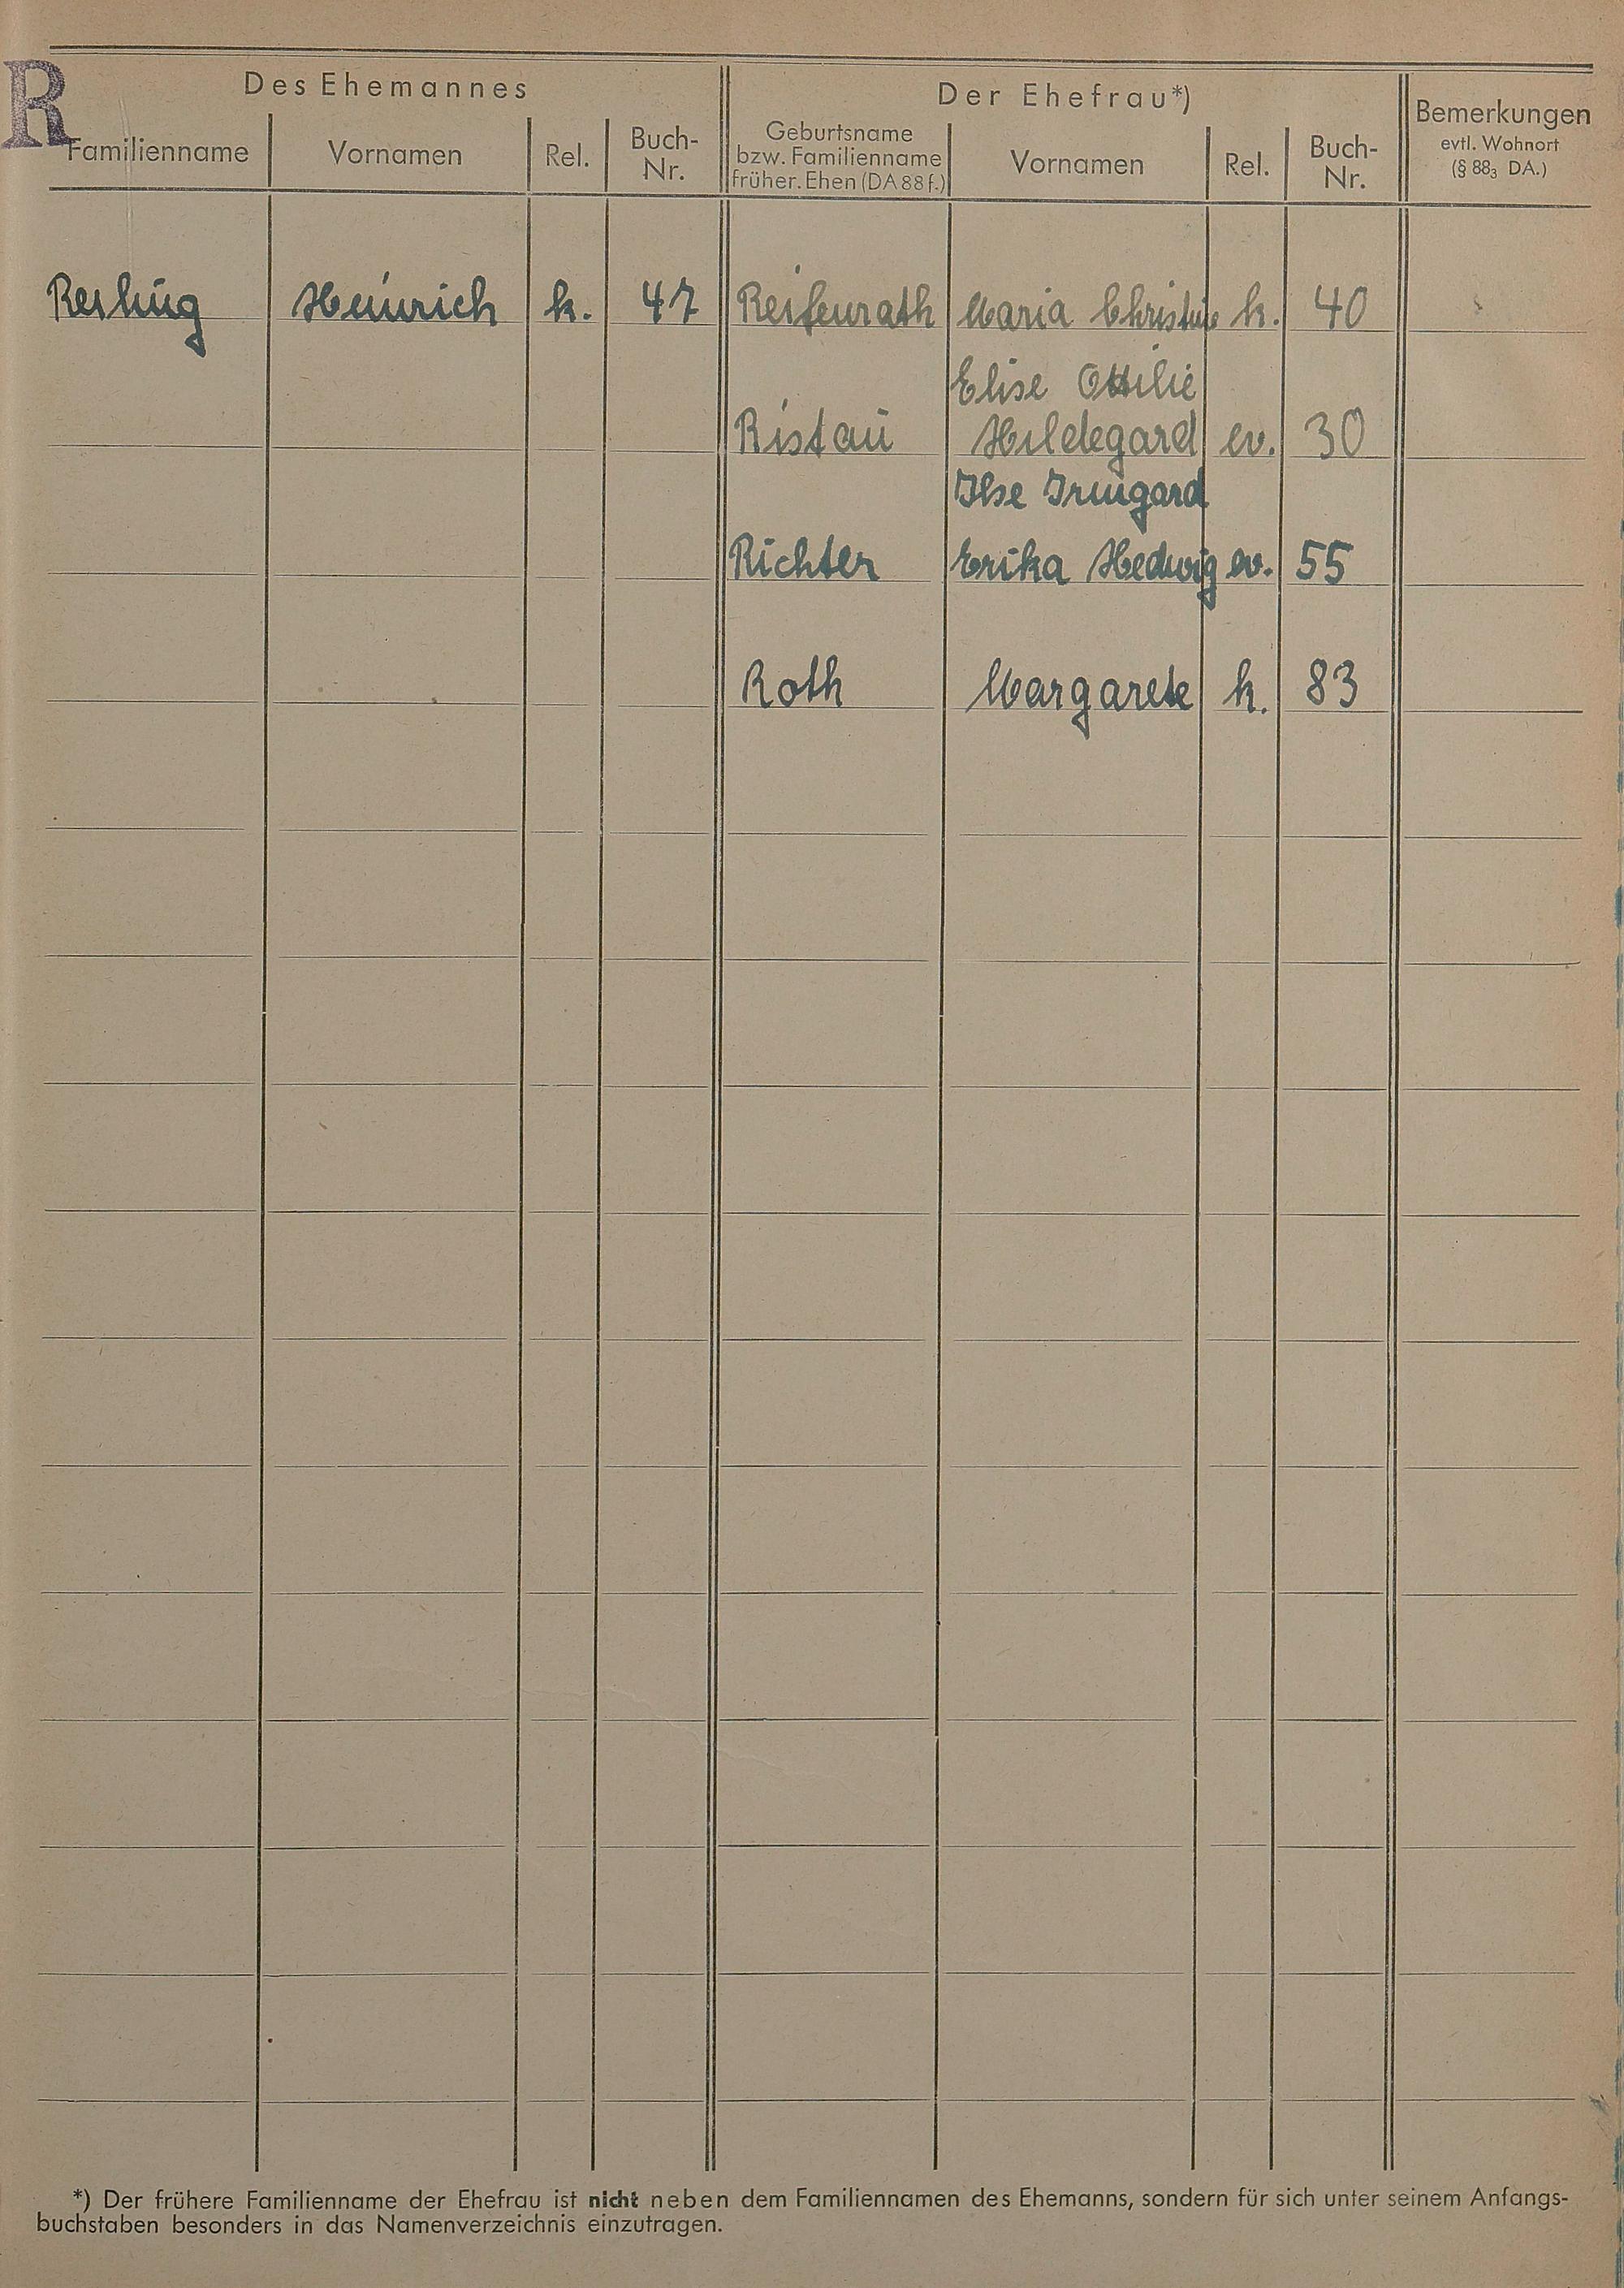 R
Des Ehemannes
Der Ehefrau*)
Bemerkungen
evtl. Wohnort
(§ 88₃ DA.)
Familienname
Vornamen
Rel.
Buch-
Nr.
Geburtsname
bzw. Familienname
früher. Ehen (DA 88 f.)
Vornamen
Rel.
Buch-
Nr.
Heinrich k. 47 Reifenrath Maria Christine k. 40
Elise Ottilie
Ristau Hildegard ev. 30
Ilse Irmgard
Richter Erika Hedwig ev. 55
Roth Margarete k. 83
*) Der frühere Familienname der Ehefrau ist nicht neben dem Familiennamen des Ehemanns, sondern für sich unter seinem Anfangs-
buchstaben besonders in das Namenverzeichnis einzutragen.